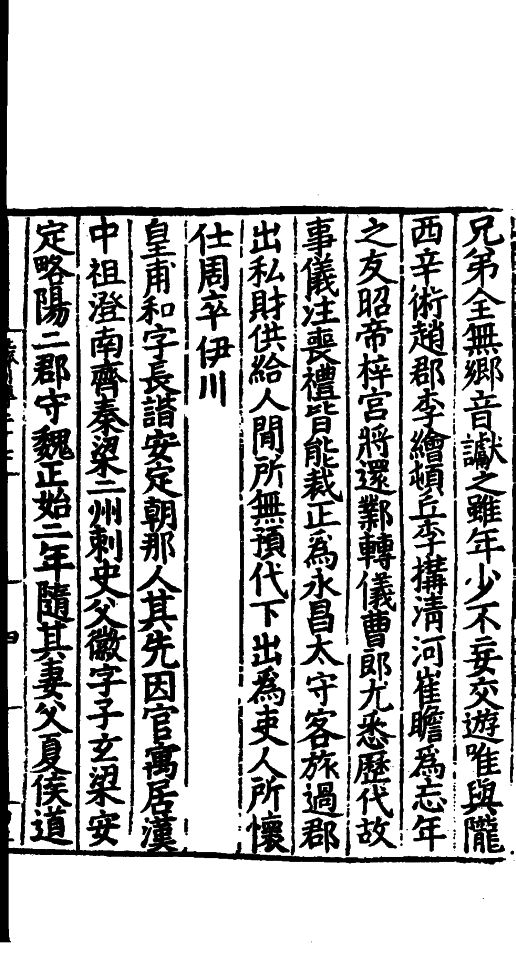 兄弟全無鄉音讞之雖年少不妄交遊唯與隴
西辛術趙郡李繪頓丘李搆清河崔瞻爲忘年
之友昭帝梓宮將還鄴轉儀曹郎尤悉歷代故
事儀注喪禮皆能裁正爲永昌太守客旅過郡
出私財供給人閒所無預代下出爲吏人所懷
仕周卒伊川
皇甫和字長諧安定朝那人其先因官寓居漢
中祖澄南齊秦梁二州刺史父徽字子玄梁安
定略陽二郡守魏正始二年隨其妻父夏侯道